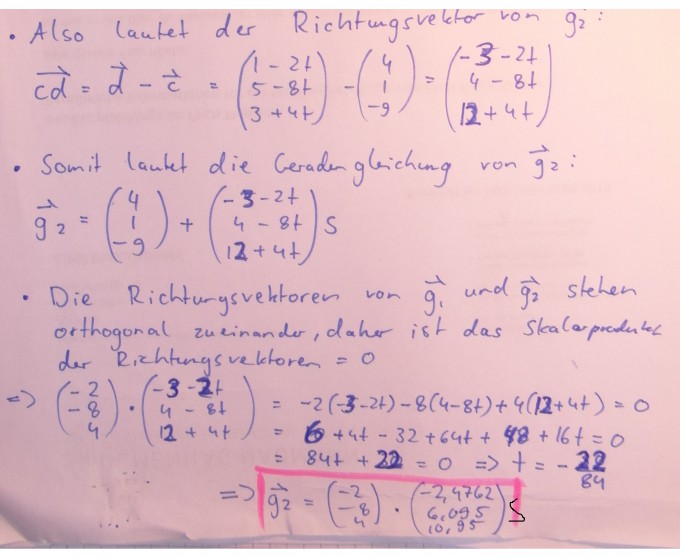 • Also lautet der Richtungsvektor von g⃗2:
c⃗d = d⃗ - c⃗ = (1 - 2t, 5 - 8t, 3 + 4t) - (4, 1, -9) = (-3 - 2t, 4 - 8t, 12 + 4t)
• Somit lautet die Geradengleichung von g⃗2:
g⃗2 = (4, 1, -9) + (-3 - 2t, 4 - 8t, 12 + 4t) S
• Die Richtungsvektoren von g⃗1 und g⃗2 stehen
orthogonal zueinander, daher ist das Skalarprodukt
der Richtungsvektoren = 0
=> (-2, -8, 4) · (-3 - 2t, 4 - 8t, 12 + 4t) = -2(-3-2t) -8(4-8t) + 4(12+4t) = 0
= 6 + 4t - 32 + 64t + 48 + 16t = 0
= 84t + 22 = 0 => t = - 22/84
=> g⃗2 = (-2, -8, 4) · (-2,4762, 6,095, 10,95) S